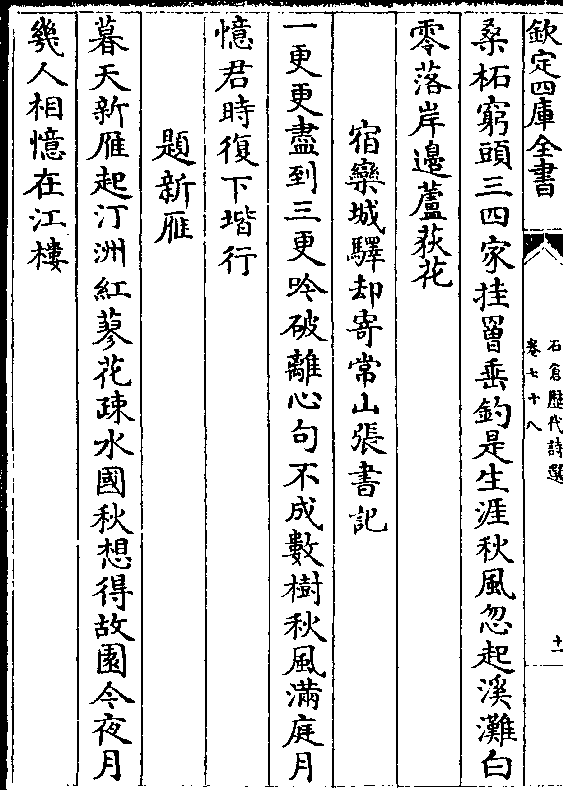 欽定四庫全書
石倉歷代詩選
卷七十八
十一
桑柘窮頭三四家挂罾垂釣是生涯秋風忽起溪灘白
零落岸邉蘆荻花
宿欒城驛却寄常山張書記
一更更盡到三更吟破離心句不成數樹秋風滿庭月
憶君時復下堦行
題新雁
暮天新雁起汀洲紅蓼花疎水國秋想得故園今夜月
幾人相憶在江樓